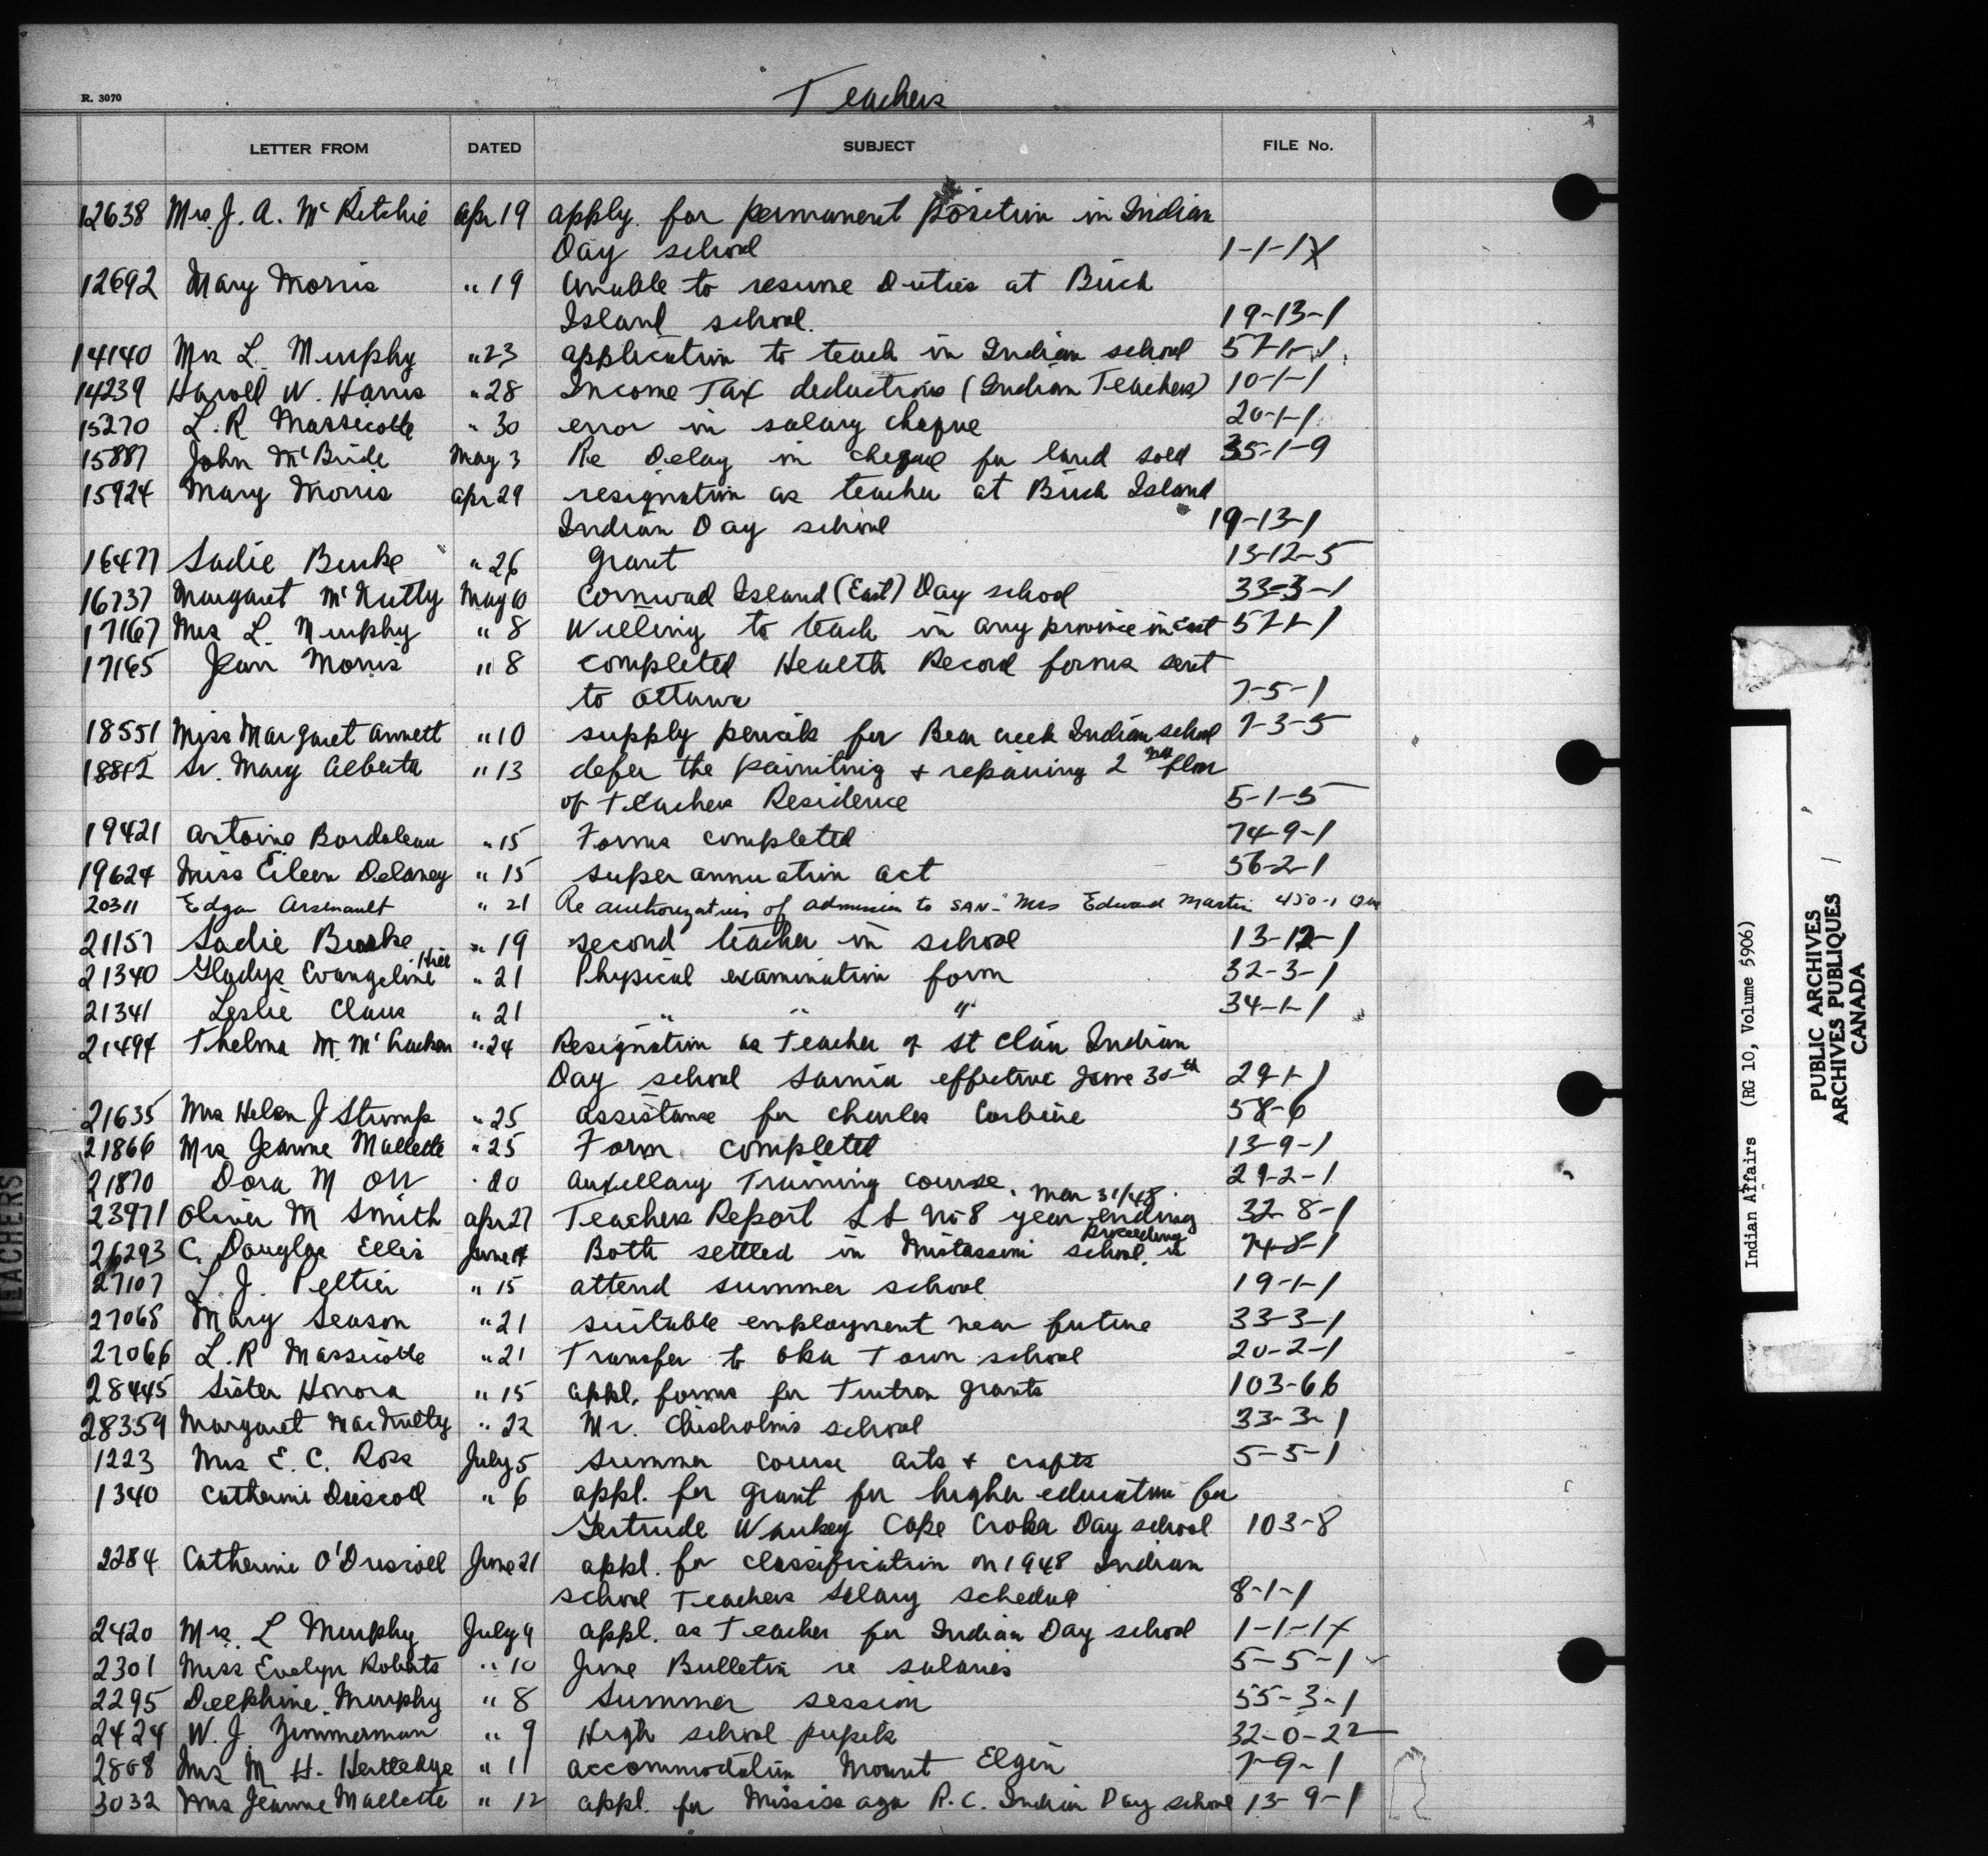 R. 3070
Teachers
LETTER FROM DATED SUBJECT FILE No.
12638 Mrs. J. A. McRitchie Apr 19 apply. for permanent position in Indian
Day school 1-1-1X
12692 Mary Morris " 19 Unable to resume Duties at Birch
Island school. 19-13-1
14140 Mrs L. Murphy " 23 application to teach in Indian school 57-1-1
14239 Harold W. Harris " 28 Income Tax deductions (Indian Teachers) 10-1-1
15270 L. R Massicotte " 30 error in salary cheque 20-1-1
15887 John McBride May 3 Re Delay in cheque for land sold 35-1-9
15924 Mary Morris Apr 29 resignation as teacher at Birch Island
Indian Day school 19-13-1
16477 Sadie Burke " 26 Grant 13-12-5
16737 Margaret McNutty May 10 Cornwad Island (East) Day school 33-3-1
17167 Mrs L. Murphy " 8 Willing to teach in any province in East 57-1-1
17165 Jean Morris " 8 completed Health Record forms sent
to Ottawa 7-5-1
18551 Miss Margaret Annett " 10 supply pencils for Bear Creek Indian school 7-3-5
18842 Sr. Mary Alberta " 13 defer the painting & repairing 2nd floor
of Teachers Residence 5-1-5
19421 Antoine Bordaleau " 15 Forms completed 74-9-1
19624 Miss Eileen Delaney " 15 superannuation act 56-2-1
20311 Edgar Arsenault " 21 Re authorization of admission to SAN- Mrs Edward Martin 450-1
21157 Sadie Burke " 19 second teacher in school 13-12-1
21340 Gladys Evangeline Hill " 21 Physical examination form 32-3-1
21341 Leslie Claus " 21 " " " 34-1-1
21494 Thelma M. McCracken " 24 Resignation as Teacher of St Clair Indian
Day school Sarnia effective June 30th 29-1-1
21635 Mrs Helen J Strump " 25 assistance for Charles Corbiere 58-6
21866 Mrs Jeanne Mallette " 25 Form completed 13-9-1
21870 Dora M Orr " 20 Auxillary Training course. 29-2-1
Mar 31/48
23971 Oliver M Smith Apr 27 Teachers Report S S No 8 year ending 32-8-1
preceeding
26293 C. Douglas Ellis June 14 Both settled in Mistassini school. 74-8-1
27107 L. J. Peltier " 15 attend summer school 19-1-1
27068 Mary Season " 21 suitable employment near future 33-3-1
27066 L. R Massicotte " 21 Transfer to Oka Town school 20-2-1
28445 Sister Honora " 15 appl. forms for Tuition grants 103-66
28359 Margaret MacNutty " 22 Mr. Chisholm's school 33-3-1
1223 Mrs E. C. Ross July 5 Summer course arts & crafts 5-5-1
1340 Catherine Driscoll " 6 appl. for grant for higher education for
Gertrude Waukey Cape Croker Day school 103-8
2284 Catherine O'Driscoll June 21 appl. for classification on 1948 Indian
school Teachers Salary schedule 8-1-1
2420 Mrs. L Murphy July 9 appl. as Teacher for Indian Day school 1-1-1X
2301 Miss Evelyn Roberts " 10 June Bulletin re salaries 5-5-1
2295 Dellphine Murphy " 8 Summer session 55-3-1
2424 W. J. Zimmerman " 9 High school pupils 32-0-22
2808 Mrs M. H. " 11 accommodation Mount Elgin 7-9-1
3032 Mrs Jeanne Mallette " 12 appl. for Mississaga R.C. Indian Day school 13-9-1
TEACHERS
Indian Affairs (RG 10, Volume 5906)
PUBLIC ARCHIVES
ARCHIVES PUBLIQUES
CANADA